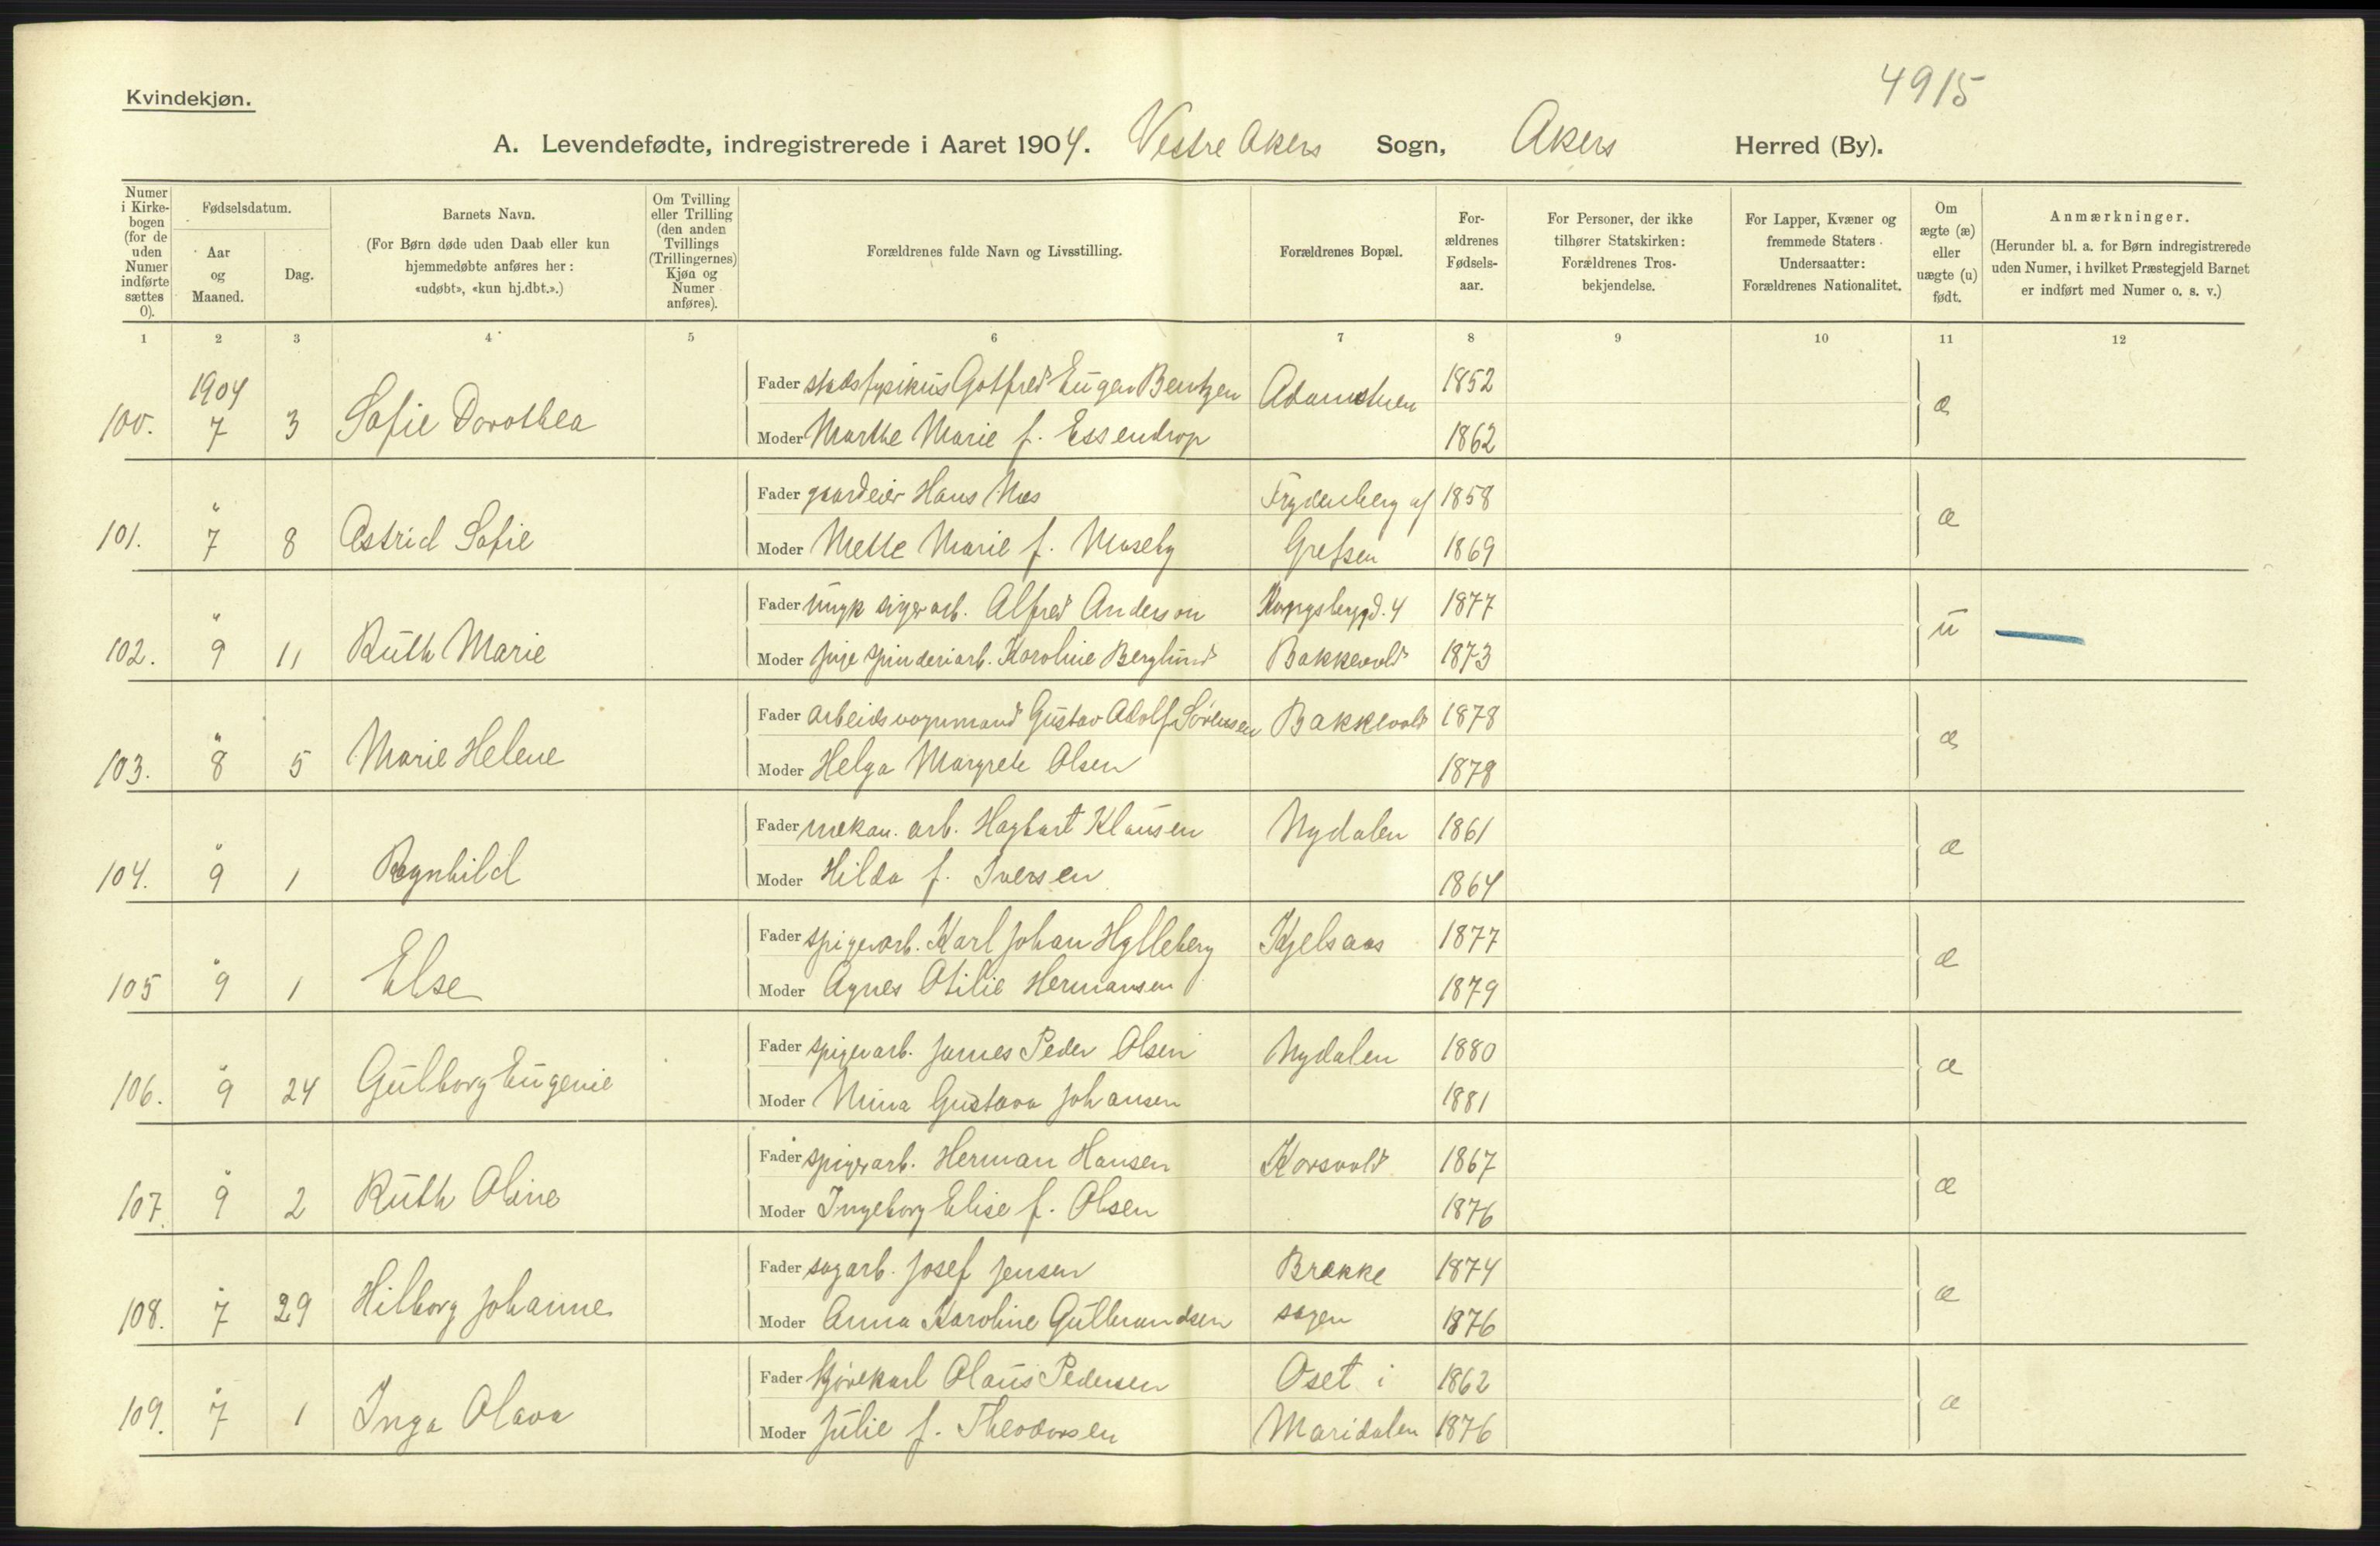 4915
Kvindekjøn.
A. Levendefødte, indregistrerede i Aaret 1904. Vestre Akers Sogn, Akers Herred (By).
Numer i Kirke-bogen (for de uden Numer indførte sættes 0).
Fødselsdatum.
Aar og Maaned.
Dag.
Barnets Navn.
(For Børn døde uden Daab eller kun hjemmedøbte anføres her: «udøbt», «kun hj.dbt.».)
Om Tvilling eller Trilling (den anden Tvillings (Trillingernes) Kjøn og Numer anføres).
Forældrenes fulde Navn og Livsstilling.
Forældrenes Bopæl.
For-ældrenes Fødsels-aar.
For Personer, der ikke tilhører Statskirken: Forældrenes Tros-bekjendelse.
For Lapper, Kvæner og fremmede Staters Undersaatter: Forældrenes Nationalitet.
Om ægte (æ) eller uægte (u) født.
Anmærkninger.
(Herunder bl. a. for Børn indregistrerede uden Numer, i hvilket Præstegjeld Barnet er indført med Numer o. s. v.)
1 2 3 4 5 6 7 8 9 10 11 12
1904
Fader stadsfysikus Gotfred Eugen Bentzen Adamstuen 1852
100. 7 3 Sofie Dorothea Moder Marthe Marie f. Essendrop 1862 æ
Fader gaardeier Hans Næs Frydenberg af 1858
101. " 7 8 Astrid Sofie Moder Mette Marie f. Maseby Grefsen 1869 æ
Fader ungk. sigerarb. Alfred Anderson Kongsberggd. 4 1877
102. " 9 11 Ruth Marie Moder pige spinderiarb. Karoline Berglund Bakkevold 1873 u
Fader arbeidsvognmand Gustav Adolf Sørensen Bakkevold 1878
103. " 8 5 Marie Helene Moder Helga Margrete Olsen 1878 æ
Fader mekan. arb. Hagbart Klausen Nydalen 1861
104. " 9 1 Ragnhild Moder Hilda f. Iversen 1864 æ
Fader spigerarb. Karl Johan Hylleberg Kjelsaas 1877
105 " 9 1 Else Moder Agnes Otilie Hermansen 1879 æ
Fader spigerarb. James Peder Olsen Nydalen 1880
106. " 9 24 Gulborg Eugenie Moder Mina Gustava Johansen 1881 æ
Fader spigerarb. Herman Hansen Korsvold 1867
107. " 9 2 Ruth Oline Moder Ingeborg Elise f. Olsen 1876 æ
Fader sagarb. Josef Jensen Brække 1874
108. " 7 29 Hilborg Johanne Moder Anna Karoline Gulbrandsen sagen 1876 æ
Fader Kjørekarl Olaus Pedersen Oset i 1862
109. " 7 1 Inga Olava Moder Julie f. Theodorsen Maridalen 1876 æ